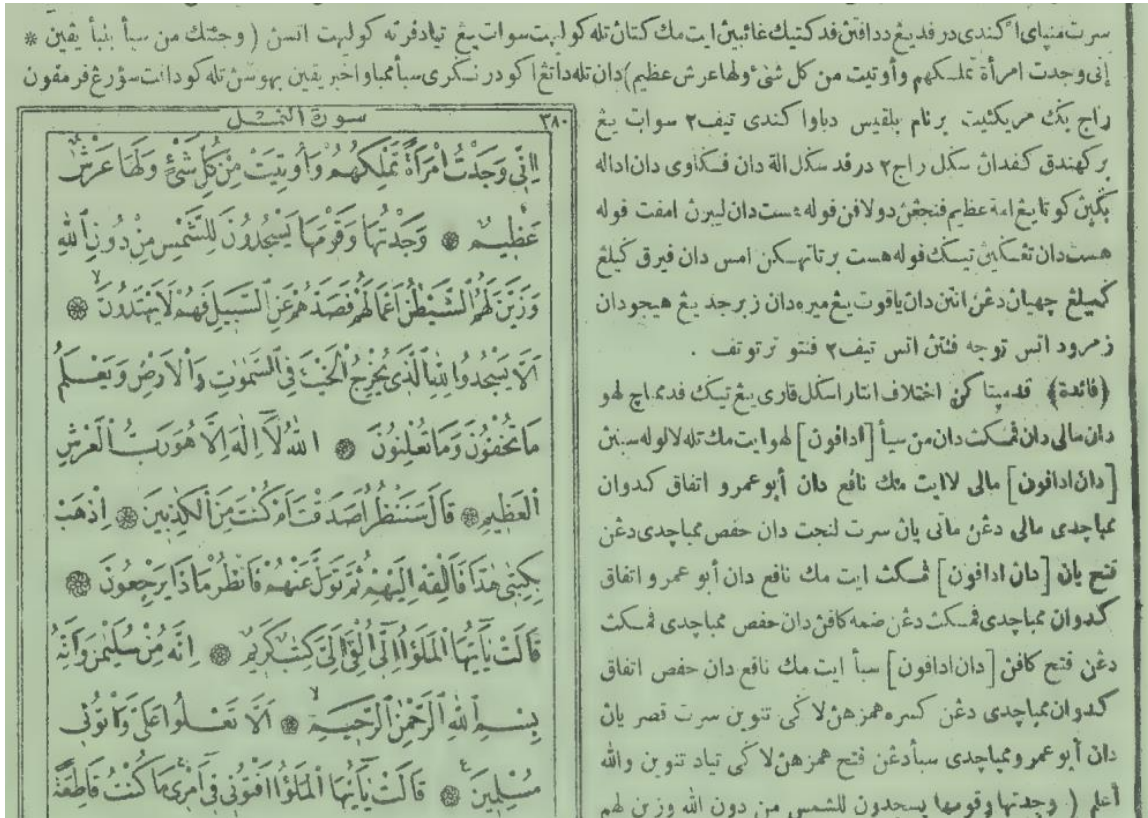 سرت منپاي اكندي در فد يڠ ددافتن فد كتيك غائبن ايت مك كتان تله كوليهت سوات يڠ تياد فرنه كوليهت انسن ( وجئتك من سبأ بنبأ يقين *
إني وجدت امرأة تملكهم وأوتيت من كل شئ ولها عرش عظيم) دان تله داتڠ اكو در نڬري سبأ ممباوا خبر يقين بهوسن تله كودافت سؤرڠ فرمفون
راج بڬ مريكئيت برنام بلقيس دباوا كندي تيف٢ سوات يڠ
بركهندق كفدان سڬل راج٢ در فد سڬل الة دان فكاوي دان اداله
بڬين كوتا يڠ امة عظيم فنجڠن دولافن فوله هست دان ليبرن امفت فوله
هست دان تڠڬين تيڬ فوله هست برتاتهكن امس دان فيرق ڬيلڠ
ڬميلڠ چهيان دڠن انتن دان ياقوت يڠ ميره دان زبرجد يڠ هيجو دان
زمرود اتس توجه فنتن اتس تيف٢ فنتو ترتوتف .
﴿فائدة﴾ فد ميتاكن اختلاف انتارا سڬل قاري يڠ تيڬ فد ممباچ لهو
دان مالي دان فمكث دان من سبأ [ادافون] لهو ايت مك تله لالو له سبتن
[دان ادافون] مالي لا ايت مك نافع دان أبو عمرو اتفاق كدوان
ممباچدي مالي دڠن ماتي يان سرت لنجت دان حفص ممباچدي دڠن
فتح يان [دان ادافون] فمكث ايت مك نافع دان أبو عمرو اتفاق
كدوان ممباچدي فمكث دڠن ضمه كافن دان حفص ممباچدي فمكث
دڠن فتح كافن [دان ادافون] سبأ ايت مك نافع دان حفص اتفاق
كدوان ممباچدي دڠن كسره همزهن لاڬي تنوين سرت قصر يان
دان أبو عمرو ممباچدي سبأ دڠن فتح همزهن لاڬي تياد تنوين والله
أعلم ( وجدتها وقومها يسجدون للشمس من دون الله وزين لهم
سورة النمل ٣٨٠
اِنِّي وَجَدْتُ امْرَأَةً تَمْلِكُهُمْ وَأُوتِيَتْ مِنْ كُلِّ شَيْءٍ وَلَهَا عَرْشٌ
عَظِيمٌ ۞ وَجَدْتُهَا وَقَوْمَهَا يَسْجُدُونَ لِلشَّمْسِ مِنْ دُونِ اللّٰهِ
وَزَيَّنَ لَهُمُ الشَّيْطٰنُ اَعْمَالَهُمْ فَصَدَّهُمْ عَنِ السَّبِيلِ فَهُمْ لَا يَهْتَدُونَ ۞
اَلَّا يَسْجُدُوا لِلّٰهِ الَّذِي يُخْرِجُ الْخَبْءَ فِي السَّمٰوٰتِ وَالْاَرْضِ وَيَعْلَمُ
مَا تُخْفُونَ وَمَا تُعْلِنُونَ ۞ اَللّٰهُ لَا اِلٰهَ اِلَّا هُوَ رَبُّ الْعَرْشِ
الْعَظِيمِ ۞ قَالَ سَنَنْظُرُ اَصَدَقْتَ اَمْ كُنْتَ مِنَ الْكٰذِبِينَ ۞ اِذْهَبْ
بِكِتٰبِي هٰذَا فَاَلْقِهْ اِلَيْهِمْ ثُمَّ تَوَلَّ عَنْهُمْ فَانْظُرْ مَاذَا يَرْجِعُونَ ۞
قَالَتْ يٰاَيُّهَا الْمَلَؤُا اِنِّي اُلْقِيَ اِلَيَّ كِتٰبٌ كَرِيمٌ ۞ اِنَّهُ مِنْ سُلَيْمٰنَ وَاِنَّهُ
بِسْمِ اللّٰهِ الرَّحْمٰنِ الرَّحِيمِ ۞ اَلَّا تَعْلُوا عَلَيَّ وَأْتُونِي
مُسْلِمِينَ ۞ قَالَتْ يٰاَيُّهَا الْمَلَؤُا اَفْتُونِي فِي اَمْرِي مَا كُنْتُ قَاطِعَةً